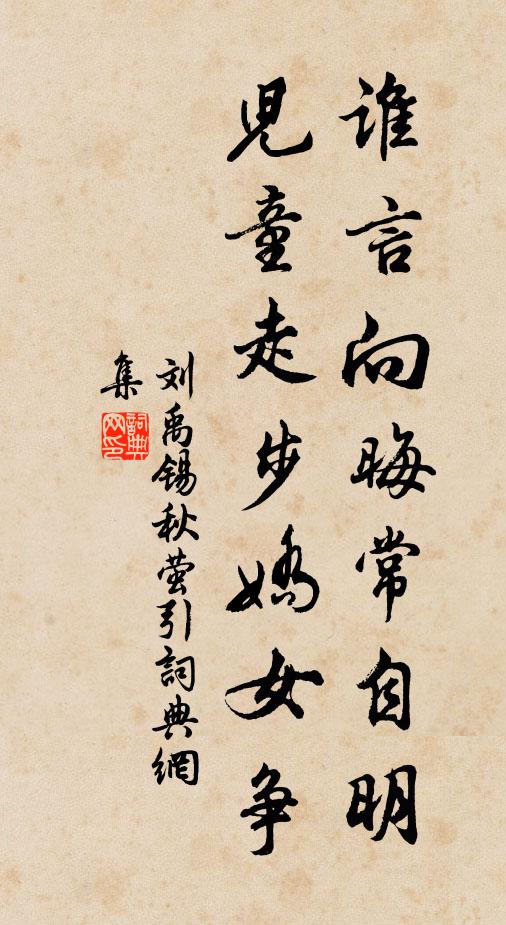 谁言向晦常自明
児童走步嬌女争
刘禹锡秋萤引詞典網
集
詞典
网印